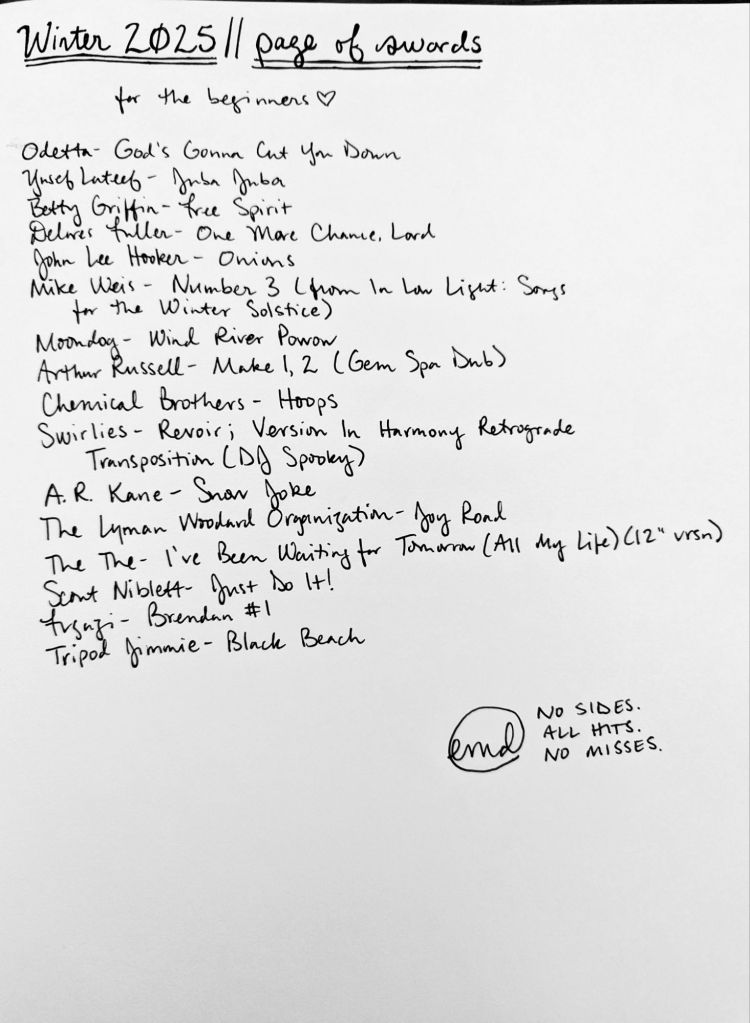 Winter 2025 // page of swords
for the beginners ♡
Odetta - God's Gonna Cut You Down
Yusef Lateef - Juba Juba
Betty Griffin - Free Spirit
Delores Fuller - One More Chance, Lord
John Lee Hooker - Onions
Mike Weis - Number 3 (from In Low Light: Songs
for the Winter Solstice)
Moondog - Wind River Powow
Arthur Russell - Make 1, 2 (Gem Spa Dub)
Chemical Brothers - Hoops
Swirlies - Revoir; Version In Harmony Retrograde
Transposition (DJ Spooky)
A.R. Kane - Snow Joke
The Lyman Woodard Organization - Joy Road
The The - I've Been Waiting for Tomorrow (All My Life) (12" vrsn)
Scout Niblett - Just Do It!
Fugazi - Brendan #1
Tripod Jimmie - Black Beach
emd
NO SIDES.
ALL HITS.
NO MISSES.